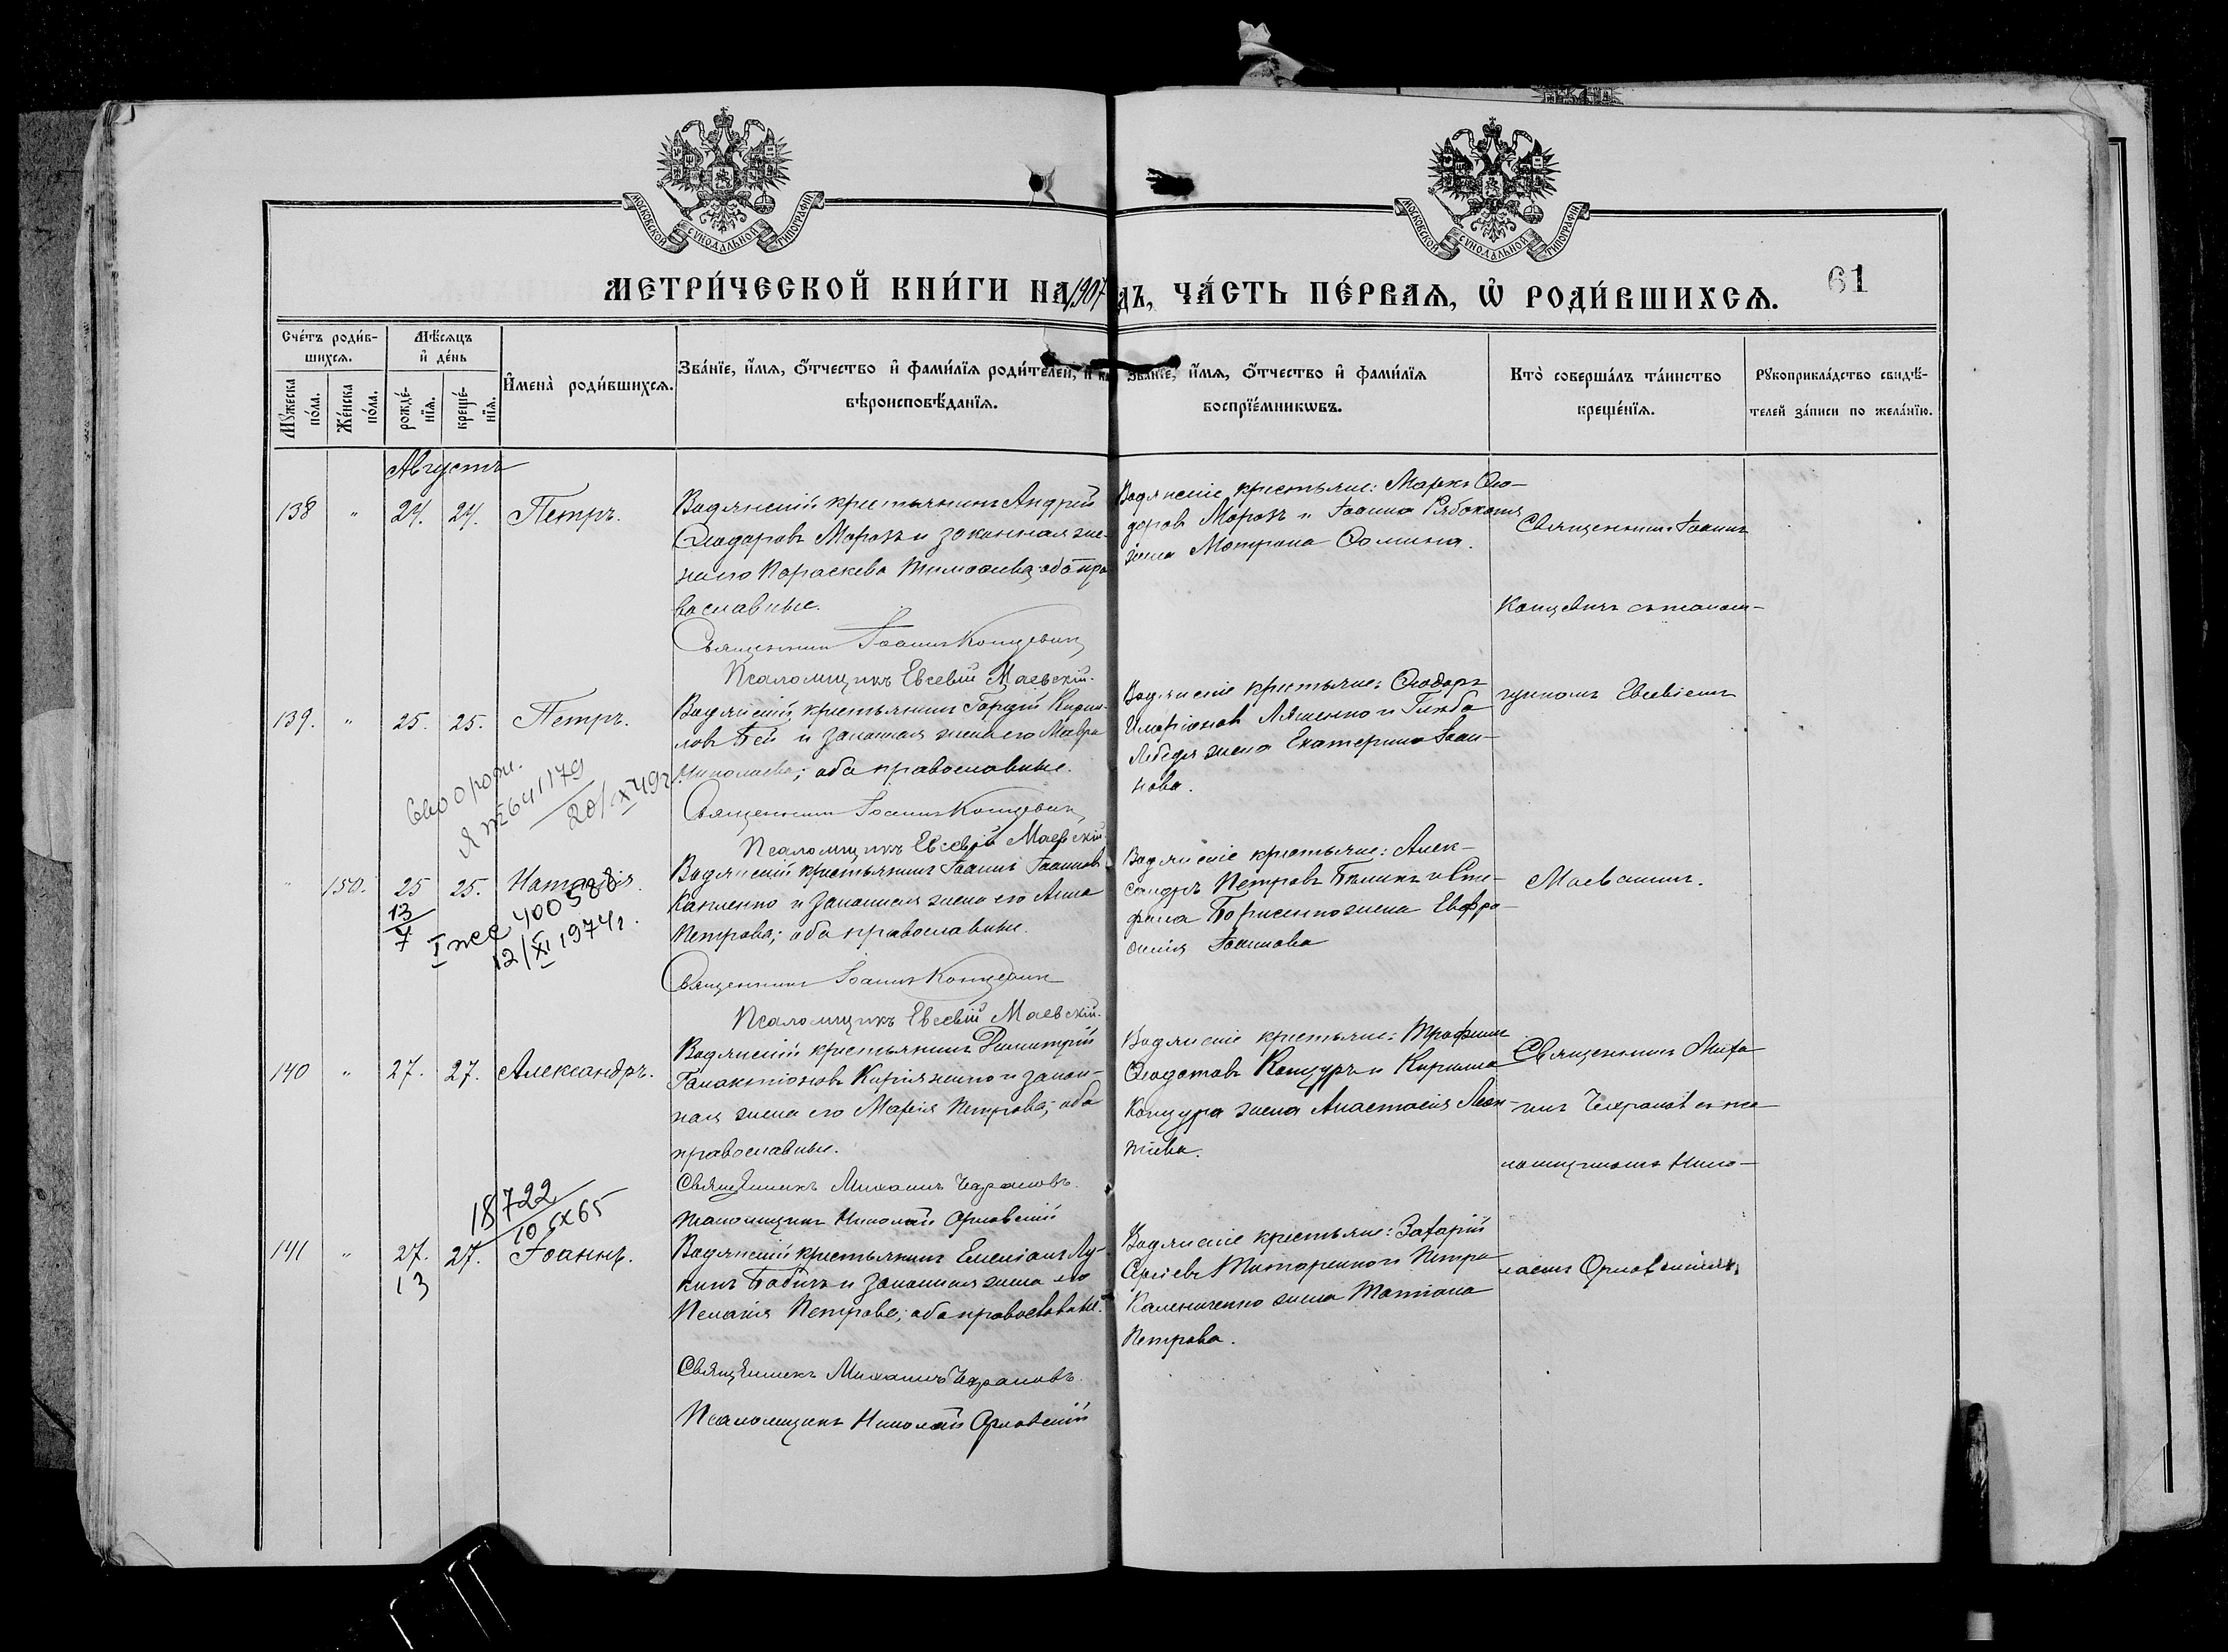 МОСКОВСКОЙ СѴНОДАЛЬНОЙ ТИПОГРАФІИ
МОСКОВСКОЙ СѴНОДАЛЬНОЙ ТИПОГРАФІИ
МЕТРИ́ЧЕСКОЙ КНИ́ГИ НА 1907 ДЪ, ЧА́СТЬ ПЕ́РВАѦ, Ѡ҆ РОДИ́ВШИХСѦ.
61
Сче́тъ роди́в-
шихсѧ.
Мѹ́жеска по́ла.
Же́нска по́ла.
Мѣ́сѧцъ
и҆ де́нь
рожде́-
нїѧ.
креще́-
нїѧ.
И҆мена̀ роди́вшихсѧ.
Зва́нїе, и҆́мѧ, ѻ҆́тчество и҆ фами́лїѧ роди́телей, и҆
вѣроисповѣ́данїѧ.
Зва́нїе, и҆́мѧ, ѻ҆́тчество и҆ фами́лїѧ
воспрїе́мникѡвъ.
Кто̀ соверша́лъ та́инство
креще́нїѧ.
Рѹкоприкла́дство свидѣ́-
телей за́писи по жела́нїю.
Августъ
138 " 24. 24. Петръ.
Водянскій крестьянинъ Андрей
Ѳеодоровъ Морозъ и законная же-
на его Параскева Тимоѳеева; оба пра-
вославные.
Священникъ Іоаннъ Концевич
Псаломщикъ Евсевій Маевскій.
Водянскіе крестьяне: Маркъ Ѳео-
доровъ Морозъ и Іоанна Рябоконя
жена Матрона Ѳомина.
Священникъ Іоаннъ
Концевичъ съ псалом-
139. " 25. 25. Петръ.
Водянскій крестьянинъ Гордій Кирил-
ловъ Бей и законная жена его Мавра
Николаева; оба православные.
Священникъ Іоаннъ Концевич
Псаломщикъ Евсевій Маевскій.
Водянскіе крестьяне: Ѳеодоръ
Иларіоновъ Ляшенко и Глѣба
Лебедя жена Екатерина Іоан-
нова.
щикомъ Евсевіемъ
641179
20/X 49г.
" 150. 25 25. Наталія.
13
7
I же 400588
12/XI 1974г.
Водянскій крестьянинъ Іоаннъ Іоанновъ
Капленко и законная жена его Анна
Петрова; оба православные.
Священникъ Іоаннъ Концевич
Псаломщикъ Евсевій Маевскій.
Водянскіе крестьяне: Алек-
сандръ Петровъ Бѣликъ и Сте-
фана Борисенко жена Евфро-
синія Іоаннова
Маевскимъ.
140 " 27. 27. Александръ.
Водянскій крестьянинъ Димитрій
Галактіоновъ Кириленко и закон-
ная жена его Марія Петрова; оба
православные.
Священникъ Михаилъ Чехрановъ.
Псаломщикъ Николай Орловскій
Водянскіе крестьяне: Трофимъ
Ѳеодотовъ Канцуръ и Кирилла
Канцура жена Анастасія Леон-
тіева.
Священникъ Миха-
илъ Чехрановъ съ пса-
ломщикомъ Нико-
18722
10 IX 65
141 " 27. 27. Іоаннъ.
13
Водянскій крестьянинъ Емеліанъ Лу-
кинъ Бабичъ и законная жена его
Пелагія Петрова; оба православные.
Священникъ Михаилъ Чехрановъ.
Псаломщикъ Николай Орловскій
Водянскіе крестьяне: Захарій
Сергіевъ Титаренко и Петра
Калениченко жена Татіана
Петрова.
лаемъ Орловскимъ